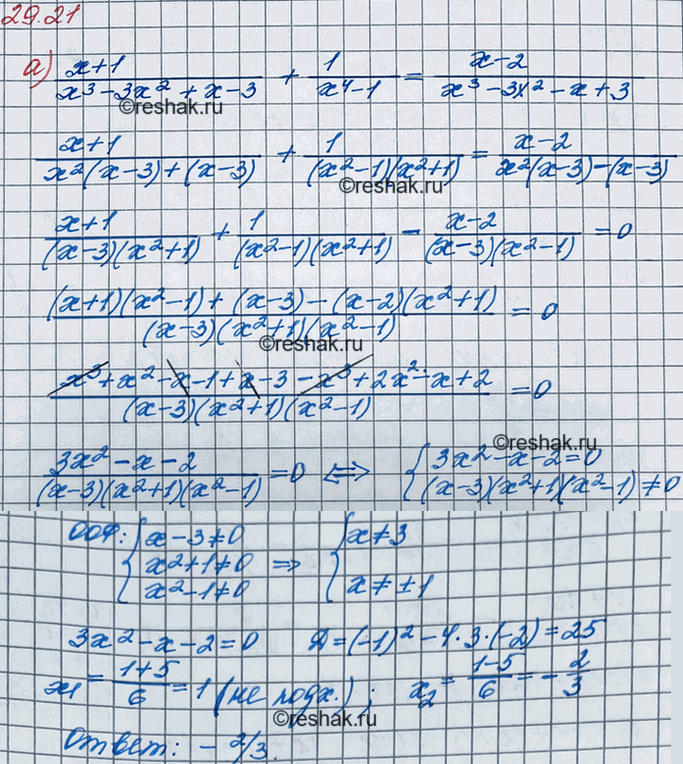 29.21
а) (x+1)/(x³-3x²+x-3) + 1/(x⁴-1) = (x-2)/(x³-3x²-x+3)
©reshak.ru
(x+1)/(x²(x-3)+(x-3)) + 1/((x²-1)(x²+1)) = (x-2)/(x²(x-3)-(x-3))
©reshak.ru
(x+1)/((x-3)(x²+1)) + 1/((x²-1)(x²+1)) - (x-2)/((x-3)(x²-1)) = 0
((x+1)(x²-1)+(x-3)-(x-2)(x²+1))/((x-3)(x²+1)(x²-1)) = 0
©reshak.ru
(x³+x²-x-1+x-3-x³+2x²-x+2)/((x-3)(x²+1)(x²-1)) = 0
©reshak.ru
(3x²-x-2)/((x-3)(x²+1)(x²-1)) = 0 ⇔ { 3x²-x-2=0
(x-3)(x²+1)(x²-1)≠0
ООФ: { x-3≠0 { x≠3
x²+1≠0 ⇒
x²-1≠0 x≠±1
3x²-x-2=0 Д=(-1)²-4·3·(-2)=25
x₁ = (1+5)/6 = 1 (не подх.); x₂ = (1-5)/6 = -2/3
©reshak.ru
Ответ: -2/3.